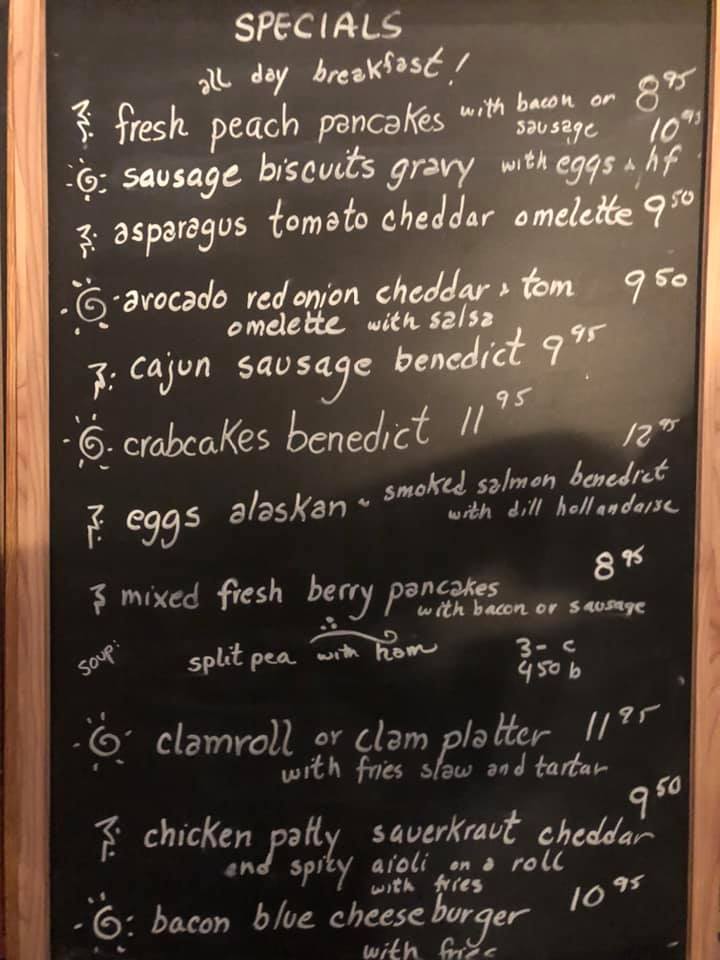 SPECIALS
all day breakfast!
fresh peach pancakes with bacon or sausage 8 95
sausage biscuits gravy with eggs & hf 10 95
asparagus tomato cheddar omelette 9 50
avocado red onion cheddar & tom 9 50
omelette with salsa
cajun sausage benedict 9 95
crabcakes benedict 11 95
eggs alaskan ~ smoked salmon benedict 12 95
with dill hollandaise
mixed fresh berry pancakes 8 95
with bacon or sausage
soup: split pea with ham 3- c
450 b
clamroll or clam platter 11 95
with fries slaw and tartar
chicken patty sauerkraut cheddar 9 50
and spity aioli on a roll
with fries
bacon blue cheese burger 10 95
with fries